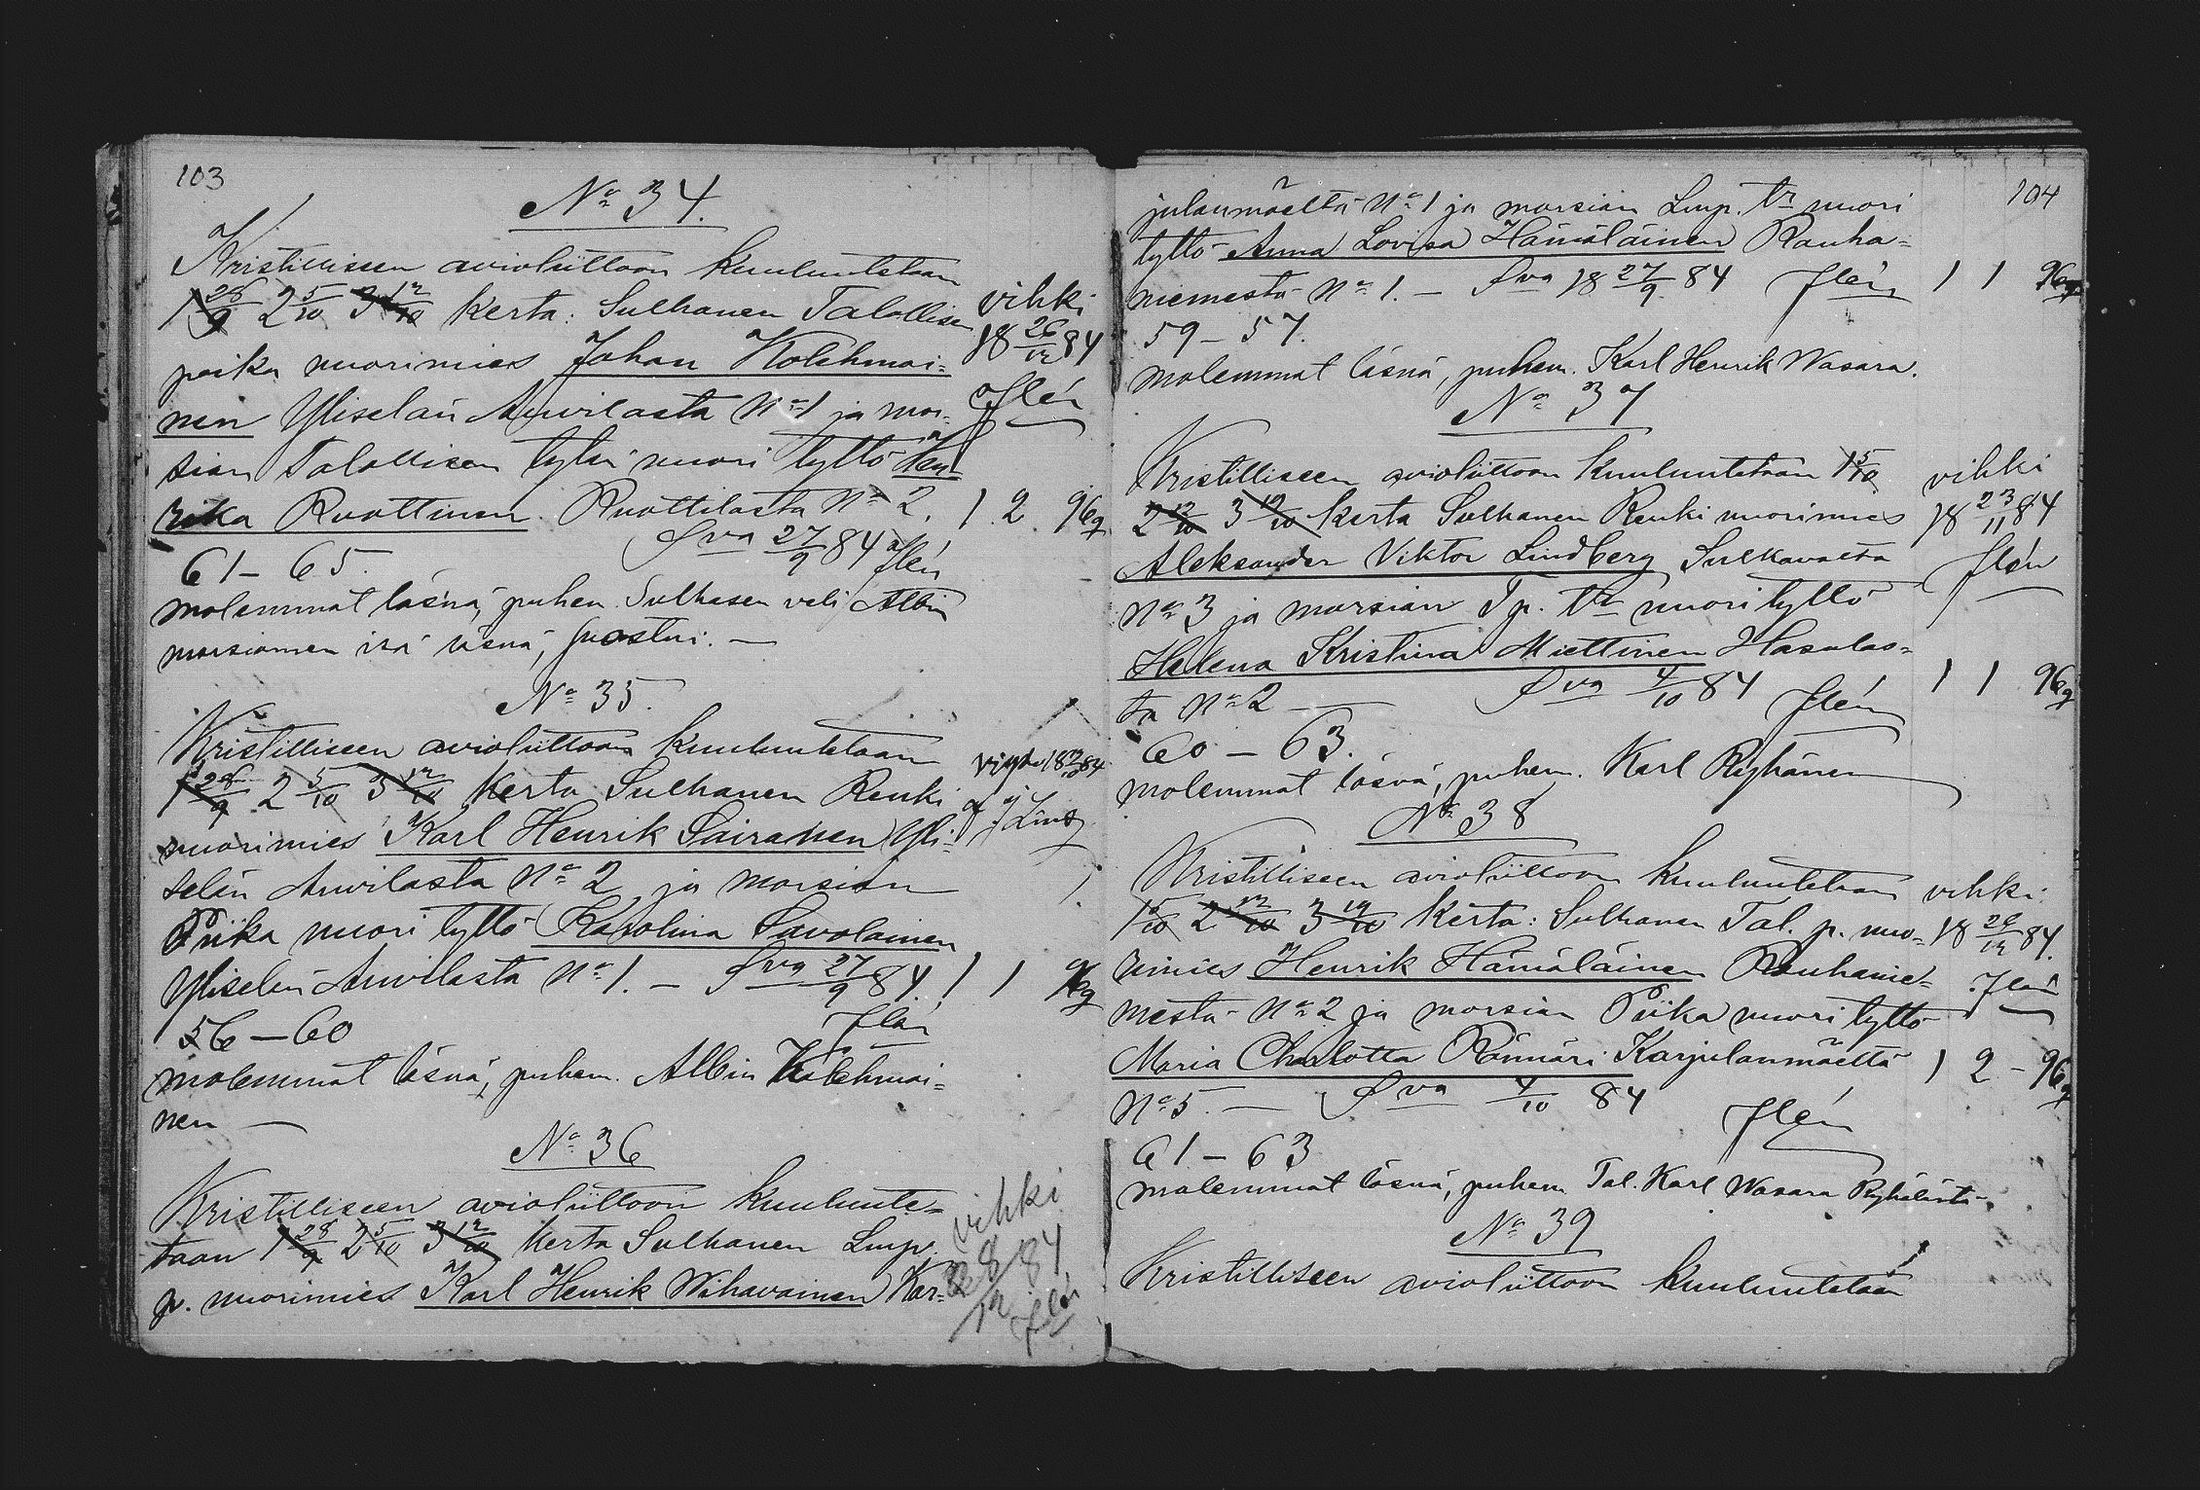 103
No 34.
Kristilliseen avioliittoon kuulutetaan
1 28/9 2 5/10 3 12/10 kerta: Sulhanen Talollisen
vihki
poika nuorimies Johan Kolehmai-
18 26/12 84
nen Yliselän Auvilasta No 1 ja mor-
Flén
sian Talollisen tytär nuori tyttö Hen-
rika Ruottinen Ruottilasta No 2. 1. 2. 96
Sva 27/9 84 Flén
61 – 65.
molemmat läsnä, puhem. Sulhasen veli Albin
morsiamen isä läsnä, suostui. —
No 35.
Kristilliseen avioliittoon kuulutetaan
1 28/9 2 5/10 3 12/10 kerta Sulhanen Renki
nuorimies Karl Henrik Sairanen Yli-
selän Auvilasta No 2 ja morsian
Piika nuori tyttö Karolina Savolainen
Yliselän Auvilasta No 1. — Sva 27/9 84. 1 1 96
56 – 60
Flén
molemmat läsnä, puhem. Albin Kolehmai-
nen —
No 36
Kristilliseen avioliittoon kuulute-
taan 1 28/9 2 5/10 3 12/10 kerta Sulhanen Lmp.
p. nuorimies Karl Henrik Wihavainen Kar-
vihki
/12 84
Flén
104
julanmäeltä No 1 ja morsian Lmp. tr nuori
tyttö Anna Lovisa Hämäläinen Rauha-
niemestä No 1. — Sva 18 27/9 84 Flén 1 1 96
59 – 57.
molemmat läsnä, puhem. Karl Henrik Wasara.
No 37
Kristilliseen avioliittoon kuulutetaan 1 5/10
vihki
2 12/10 3 19/10 kerta Sulhanen Renki nuorimies
18 23/11 84
Aleksander Viktor Lindberg Sulkavalta
Flén
No 3 ja morsian Tp. tr nuori tyttö
Helena Kristina Miettinen Hasulas-
ta No 2 — Sva 4/10 84 Flén 1 1 96
60 – 63.
molemmat läsnä, puhem. Karl Ryhänen
No 38
Kristilliseen avioliittoon kuulutetaan
vihki
1 5/10 2 12/10 3 19/10 kerta: Sulhanen Tal. p. nuo-
18 26/12 84.
rimies Henrik Hämäläinen Rauhanie-
Flén
mestä No 2 ja morsian Piika nuori tyttö
Maria Charlotta Rönnäri Karjulanmäeltä 1 2 – 96
No 5. — Sva 4/10 84 Flén
61 – 63
molemmat läsnä, puhem Tal. Karl Wasara Ryhälästä.
No 39
Kristilliseen avioliittoon kuulutetaan